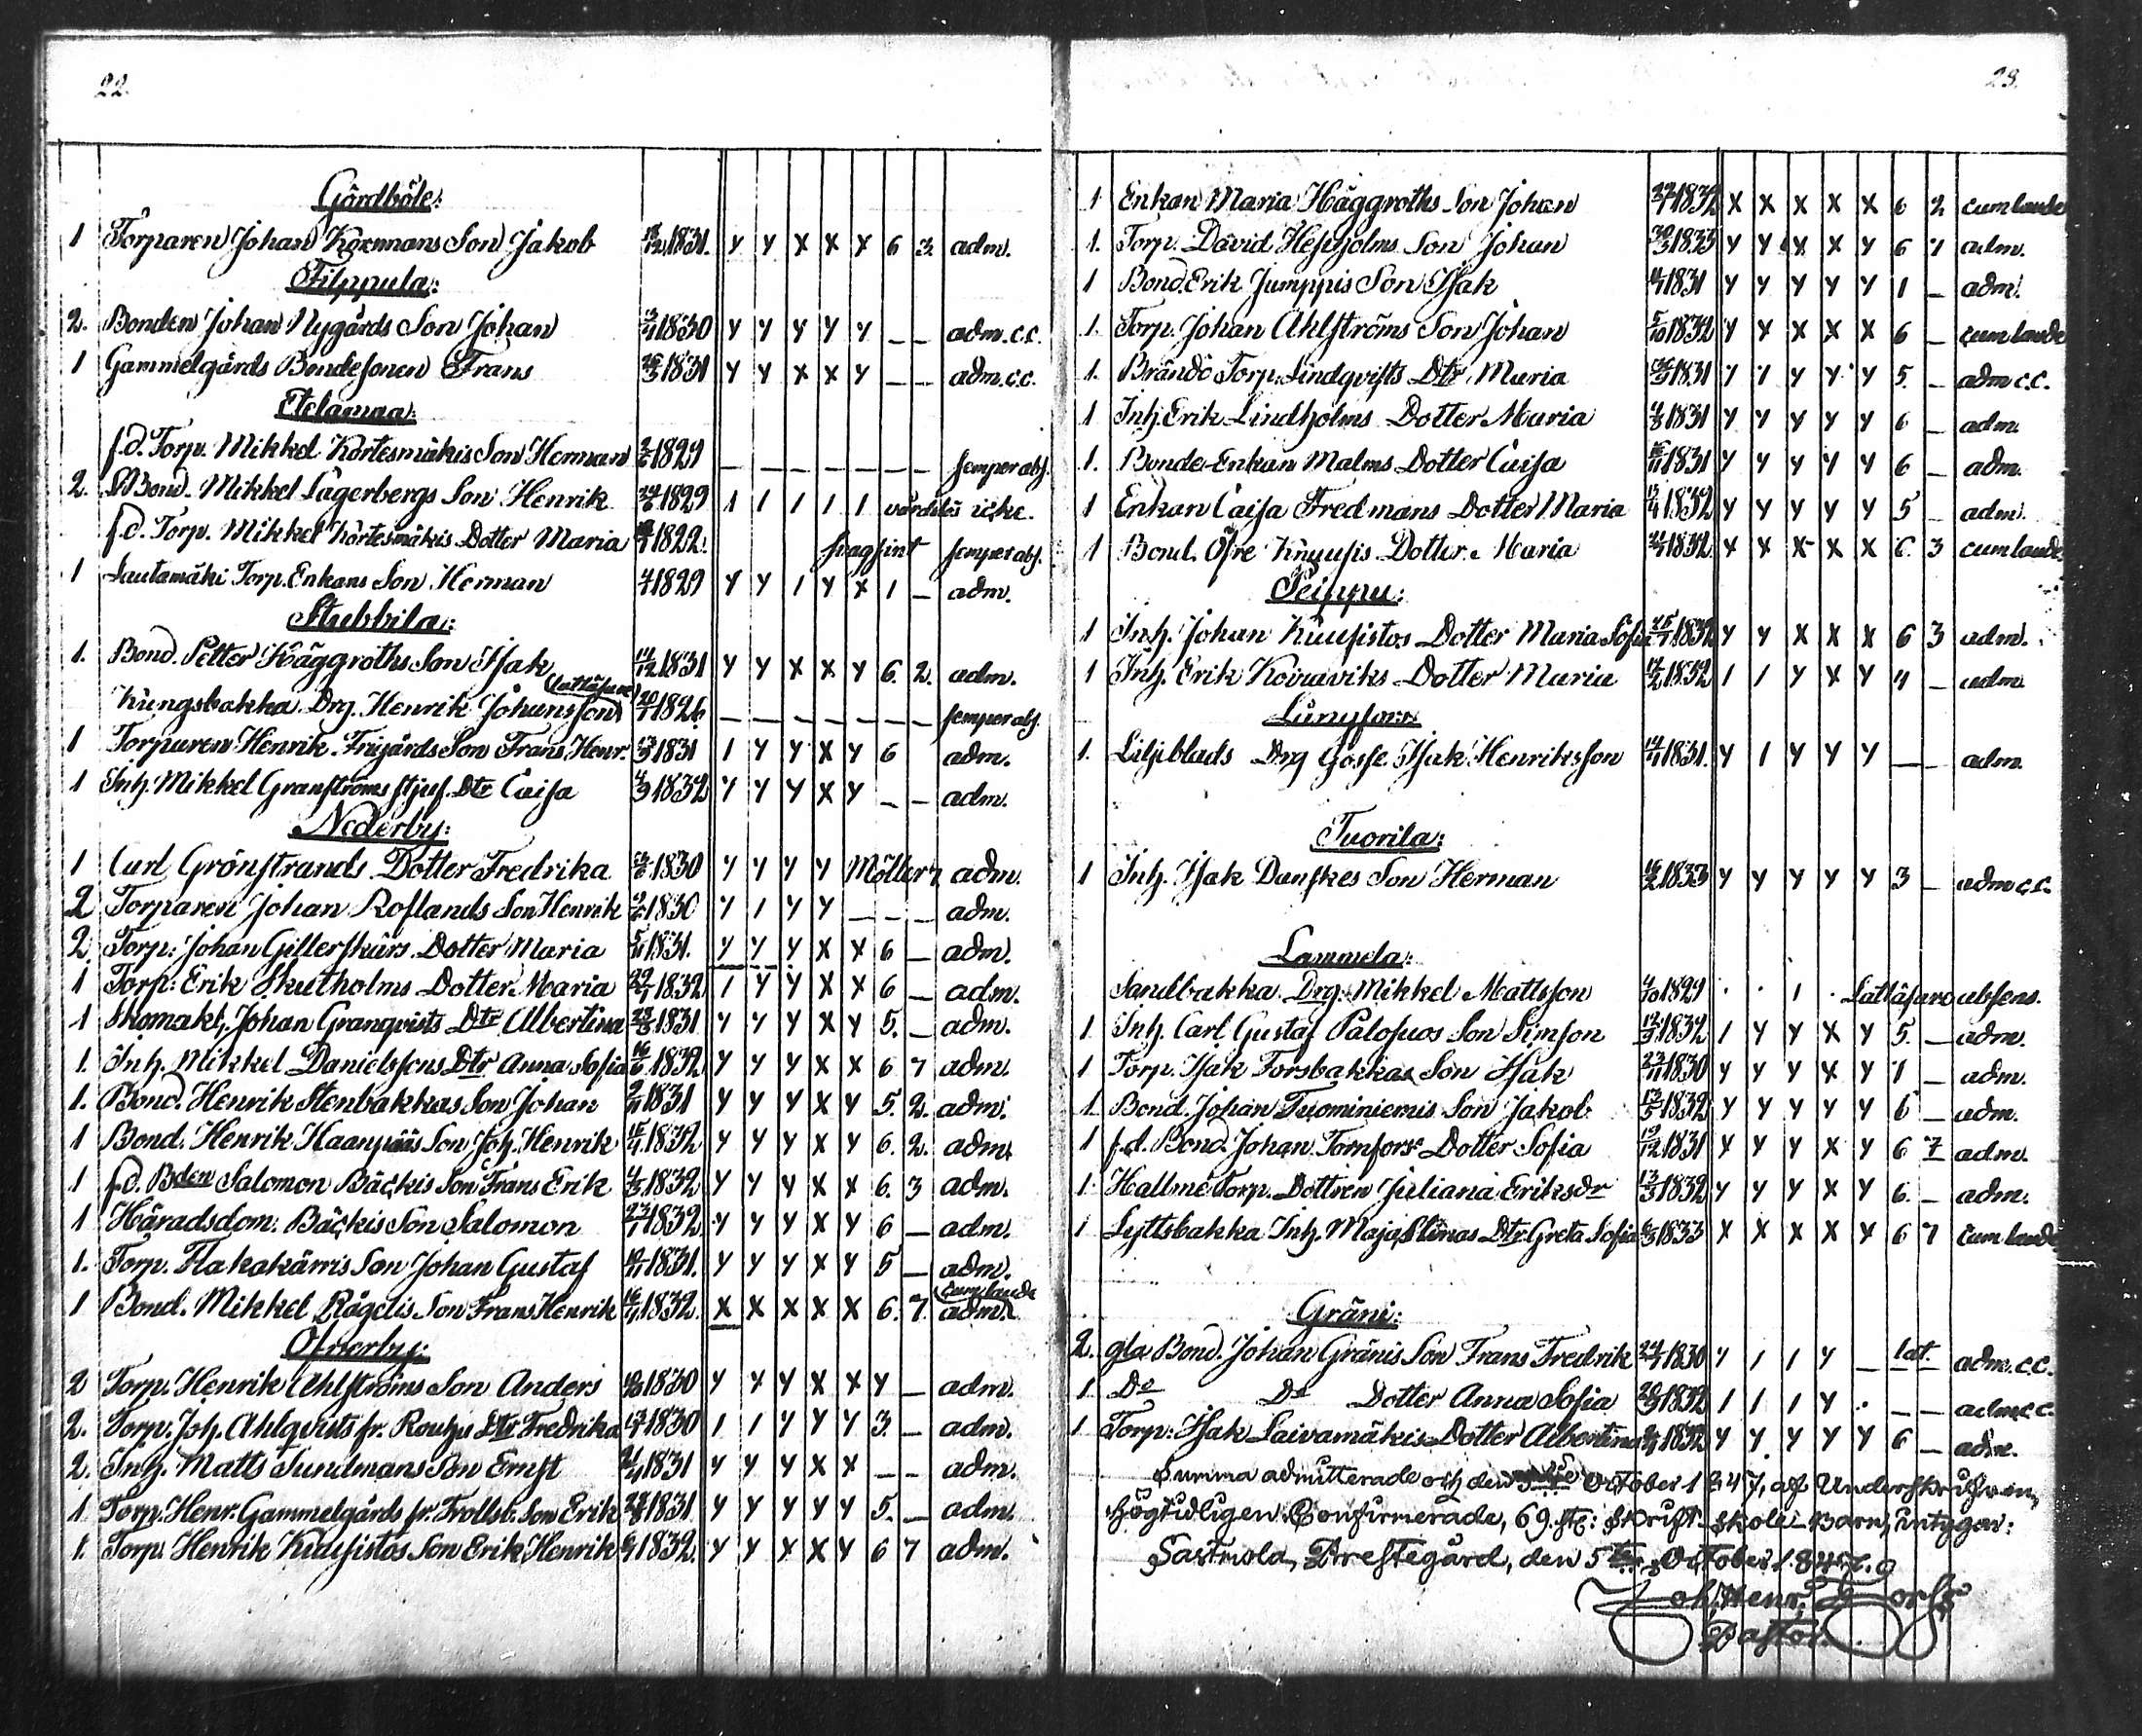 22.
Gårdböle:
1 Torparen Johan Kornmans Son Jakob 1831. y y x x x 6 3. adm.
Filppula:
2. Bonden Johan Nygårds Son Johan 1830 y y y y y _ _ adm. c.c.
1 Gammelgårds Bondesonen Frans 1831 y y x x y _ _ adm. c.c.
Etelamaa:
f.d. Torp. Mikkel Körtesmäkis Son Herman 1829 _ _ _ _ _ _ _ semper abs.
2. Bond. Mikkel Lagerbergs Son Henrik 1829 1 1 1 1 1 icke.
f.d. Torp. Mikkel Körtesmäkis Dotter Maria 1822. semper abs.
1 Lautamäki Torp. Enkans Son Herman 1829 y y 1 y x 1 _ adm.
Stubbila:
1. Bond. Petter Häggroths Son Isak 14/12 1831 y y x x y 6. 2. adm.
Kungsbakka Drg. Henrik Johansson (Lattläsare) 1826 _ _ _ _ _ _ _ semper abs.
1 Torparen Henrik Frigårds Son Frans Henr. 1831 1 y y x y 6 adm.
1 Inh. Mikkel Granströms stjuf Dtr Caisa 4/3 1832 y y y x y _ _ adm.
Nederby:
1 Carl Grönstrands Dotter Fredrika 1830 y y y y Möller adm.
2 Torparen Johan Roslands Son Henrik 1830 y 1 y y _ _ _ adm.
2 Torp: Johan Gillerskärs Dotter Maria 1831. y y y x x 6 _ adm.
1 Torp: Erik Skutholms Dotter Maria 1832 1 y y x x 6 _ adm.
1 Skomak. Johan Granqvists Dtr Albertina 1831 y y y x y 5. _ adm.
1. Inh. Mikkel Danielssons Dtr Anna Sofia 1832 y y y x x 6 7 adm.
1. Bond. Henrik Stenbakkas Son Johan 1831 y y y x y 5. 2. adm.
1 Bond. Henrik Haanpääs Son Joh. Henrik 1832 y y y x y 6. 2. adm.
1 f.d. Bden Salomon Bäckis Son Frans Erik 4/3 1832 y y y x x 6. 3 adm.
1 Häradsdom: Bäckis Son Salomon 23/1 1832. y y y x y 6 _ adm.
1. Torp. Flakakärris Son Johan Gustaf 1831. y y y x y 5 _ adm.
1 Bond. Mikkel Rågelis Son Frans Henrik 1832. x x x x x 6. 7. adm. cum laude
Öfverby:
2 Torp. Henrik Ahlströms Son Anders 1830 y x y x x y _ adm.
2. Torp. Joh. Ahlqvists fr. Dtr Fredrika 1830 1 1 y y y 3. _ adm.
2. Inh. Matts Sundmans Son Ernst 1831 y y y x x _ _ adm.
1 Torp. Henr. Gammelgårds fr. Trollsb. Son Erik 1831 y y y y y 5. _ adm.
1. Torp. Henrik Kuusistos Son Erik Henrik 1832. y y x x y 6 7 adm.
23.
1 Enkan Maria Häggroths Son Johan 1832 x x x x x 6 2 cum laude
1. Torp. David Hessholms Son Johan 30/3 1833 y y x x y 6 7 adm.
1 Bond. Erik Jumppis Son Isak 1831 y y y y y 1 _ adm.
1. Torp. Johan Ahlströms Son Johan 5/10 1832 y x x x x 6 _ cum laude
1. Brändö Torp. Lindqvists Dtr Maria 1831 y y y y y 5. _ adm c.c.
1 Inh. Erik Lindholms Dotter Maria 4/8 1831 y y y y y 6 _ adm.
1. Bonde-Enkan Malms Dotter Caisa 1831 y y y y y 6 _ adm.
1 Enkan Caisa Fredmans Dotter Maria 1832 y y y y y 5 _ adm.
1 Bond. Öfre Knuusis Dotter Maria 1832 x x x x x 6. 3 cum laude
Peippu:
1 Inh. Johan Kuusistos Dotter Maria Sofia 1832 y y x x x 6 3 adm.
1 Inh. Erik Koiraviks Dotter Maria 1832 1 1 y x y 4 _ adm.
Långfors
1. Liljeblads Drg Gosse Isak Henriksson 1831. y 1 y y y _ _ adm.
Tuorila:
1 Inh. Isak Danskes Son Herman 1833 y y y y y 3 _ adm c.c.
Lammela:
Sandbakka Drg. Mikkel Mattsson 4/10 1829 . . 1 . Lattläsare absens.
1 Inh. Carl Gustaf Palosuos Son Simson 1832 1 y y x y 5. _ adm.
1 Torp. Isak Forsbakkas Son Isak 23/11 1830 y y y x y 1 _ adm.
1 Bond. Johan Tuominiemis Son Jakob 13/5 1832 y y y y y 6 _ adm.
1 f.d. Bond. Johan Tornfors Dotter Sofia 19/12 1831 x y y x y 6 7 adm.
1 Hallme Torp. Dottren Juliana Eriksdr 13/3 1832 y y y x y 6. _ adm.
1 Lyttsbakka Inh. Maja Stinas Dtr Greta Sofia 1833 x x x x x 6 7 cum laude
Gräni:
2. gla Bond. Johan Gränis Son Frans Fredrik 1830 y 1 1 y _ lat. adm. c.c.
1 Do Do Dotter Anna Sofia 1832 1 1 1 y . _ _ adm c.c.
1 Torp: Isak Laivamäkis Dotter Albertina 1832 y y y y y 6 _ adm.
Summa admitterade och den October 1847, af Underskrifven,
högtidligen Confirmerade, 69. st: skrift-skole-Barn, intygar:
Sastmola, Prestegård, den 5te October 1847.
Joh. Henr.
Pastor.